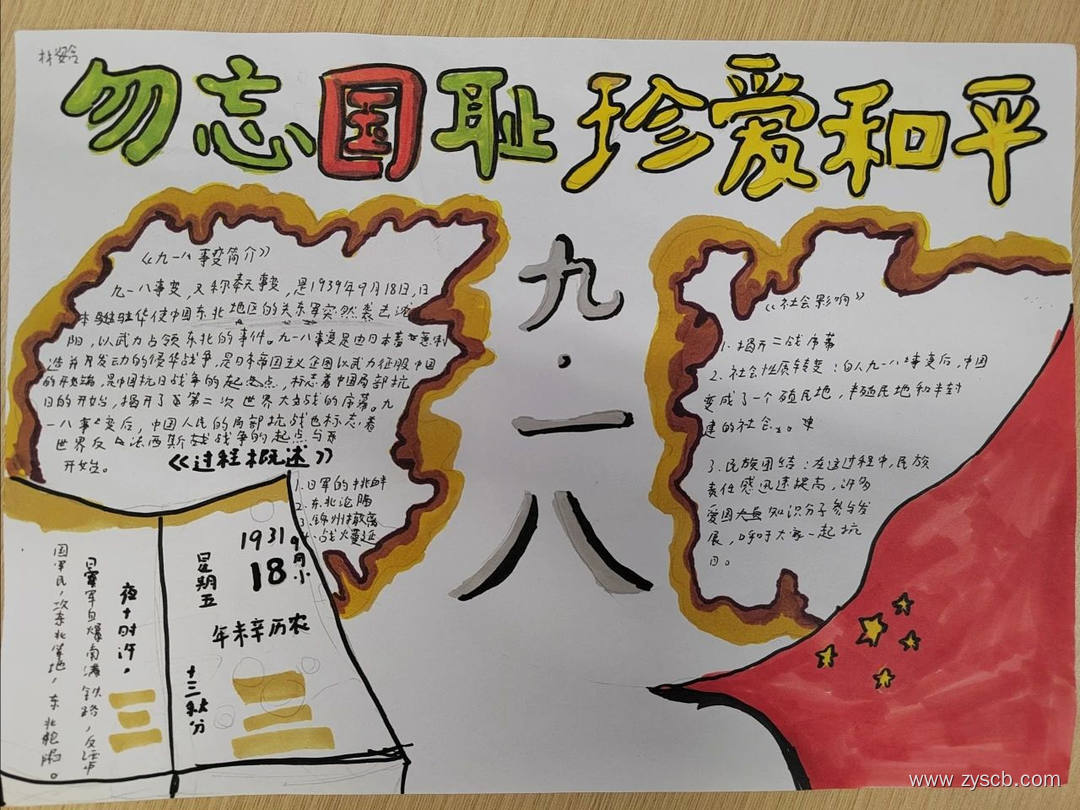 勿忘国耻 珍爱和平
九·一八
《九一八事变简介》
九一八事变,又称奉天事变,是1939年9月18日,日
本驻华侵中国东北地区的关东军突然袭击沈
阳,以武力占领东北的事件。九一八事变是由日本蓄意制
造并发动的侵华战争,是日本帝国主义企图以武力征服中国
的开端,是中国抗日战争的起点,标志着中国局部抗
日的开始,揭开了第二次世界大战的序幕。九
一八事变后,中国人民的局部抗战也标志着
世界反法西斯战争的起点与
开始。
《过程概述》
1.日军的挑衅
2.东北沦陷
3.锦州撤离
战火蔓延
1931
9月小
18
星期五
农历辛未年
十三秋分
三
夜十时许。
三
日军自爆南满铁路,反诬中
国军民,攻东北军地,东北沦陷。
《社会影响》
1.揭开二战序幕
2.社会性质转变:自从九一八事变后,中国
变成了一个殖民地,半殖民地和半封
建的社会。
3.民族团结:在这过程中,民族
责任感迅速提高,许多
爱国知识分子参与发
展,呼吁大家一起抗
日。
www.zyscb.com